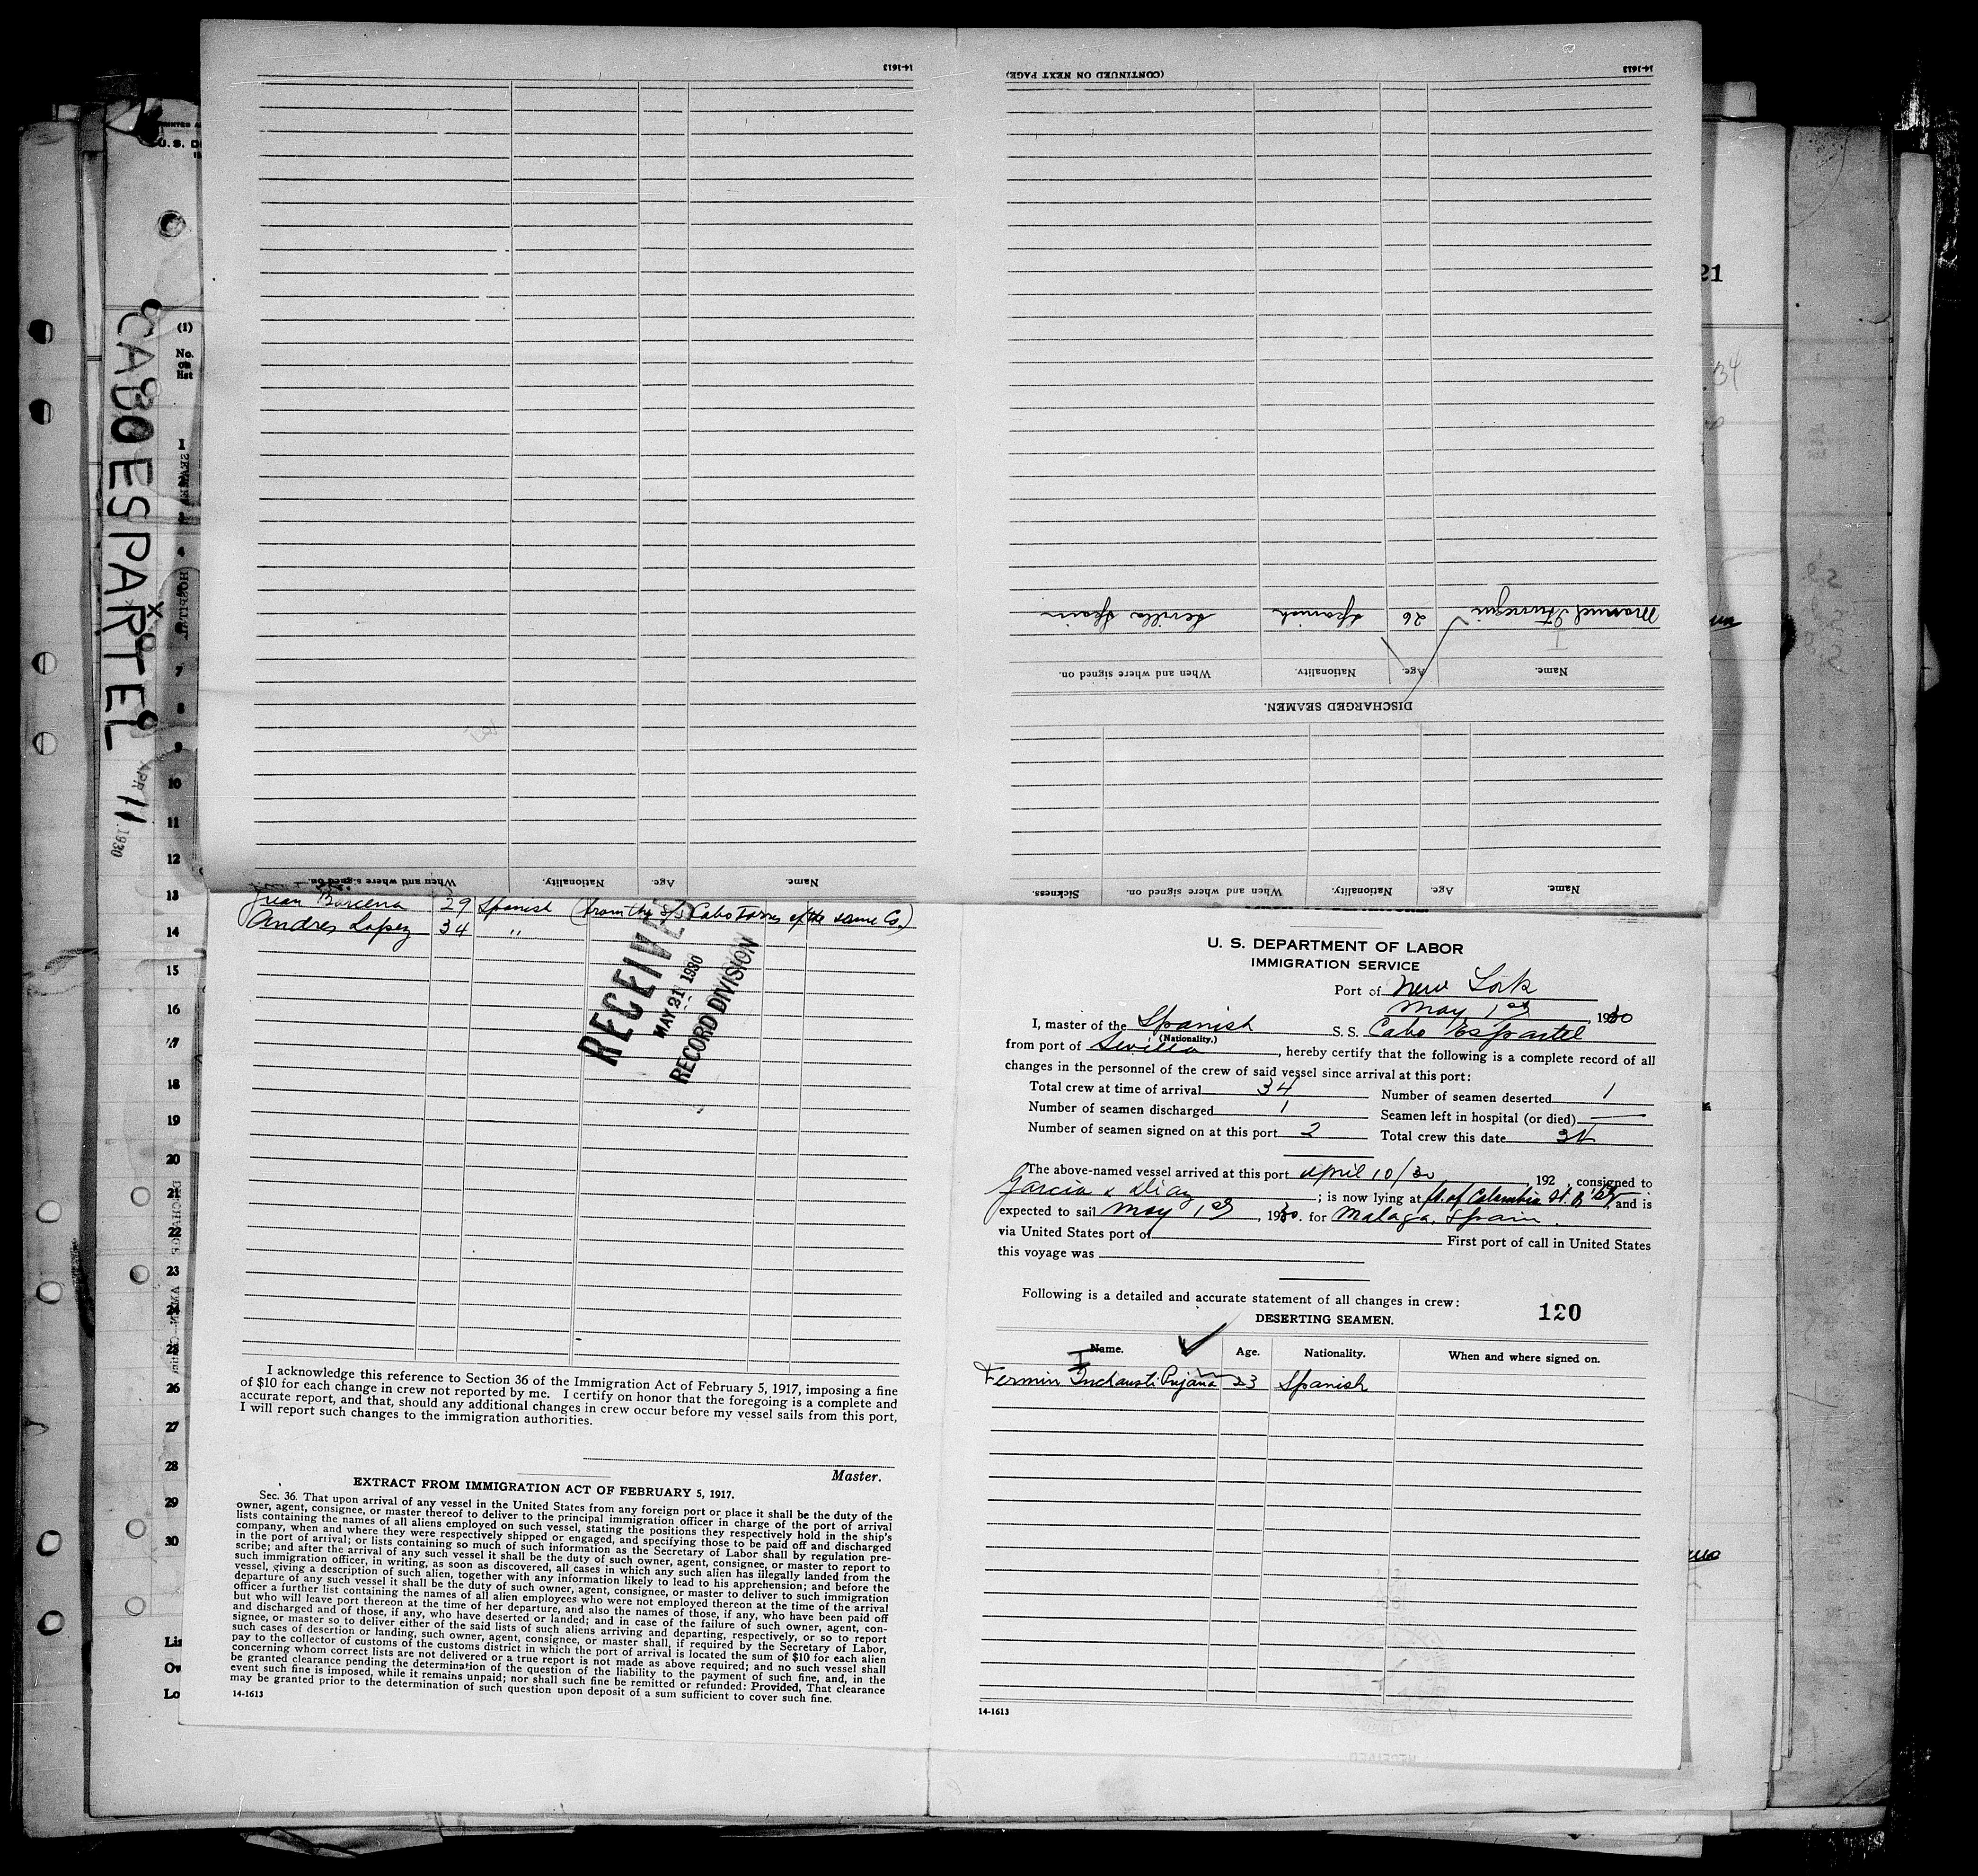 14-1613
(CONTINUED ON NEXT PAGE)
14-1613
Manuel 26 Spanish Sevilla Spain
Name. Age. Nationality. When and where signed on.
DISCHARGED SEAMEN.
Name. Age. Nationality. When and where signed on. Sickness.
Name. Age. Nationality. When and where signed on.
CABO ESPARTEL
APR 11 1930
U. S. D
(1)
No.
on
list
1
4
7
8
9
10
11
12
13
14
15
16
17
18
19
20
21
22
23
24
25
26
27
28
29
30
Lin
Ow
Lo
21
34
Juan Barcena 29 Spanish (from the S/S Cabo Torres of the same Co.)
Andres Lopez 34 "
RECEIVED
MAY 21 1930
RECORD DIVISION
I acknowledge this reference to Section 36 of the Immigration Act of February 5, 1917, imposing a fine
of $10 for each change in crew not reported by me. I certify on honor that the foregoing is a complete and
accurate report, and that, should any additional changes in crew occur before my vessel sails from this port,
I will report such changes to the immigration authorities.
Master.
EXTRACT FROM IMMIGRATION ACT OF FEBRUARY 5, 1917.
Sec. 36. That upon arrival of any vessel in the United States from any foreign port or place it shall be the duty of the
owner, agent, consignee, or master thereof to deliver to the principal immigration officer in charge of the port of arrival
lists containing the names of all aliens employed on such vessel, stating the positions they respectively hold in the ship's
company, when and where they were respectively shipped or engaged, and specifying those to be paid off and discharged
in the port of arrival; or lists containing so much of such information as the Secretary of Labor shall by regulation pre-
scribe; and after the arrival of any such vessel it shall be the duty of such owner, agent, consignee, or master to report to
such immigration officer, in writing, as soon as discovered, all cases in which any such alien has illegally landed from the
vessel, giving a description of such alien, together with any information likely to lead to his apprehension; and before the
departure of any such vessel it shall be the duty of such owner, agent, consignee, or master to deliver to such immigration
officer a further list containing the names of all alien employees who were not employed thereon at the time of the arrival
but who will leave port thereon at the time of her departure, and also the names of those, if any, who have been paid off
and discharged and of those, if any, who have deserted or landed; and in case of the failure of such owner, agent, con-
signee, or master so to deliver either of the said lists of such aliens arriving and departing, respectively, or so to report
such cases of desertion or landing, such owner, agent, consignee, or master shall, if required by the Secretary of Labor,
pay to the collector of customs of the customs district in which the port of arrival is located the sum of $10 for each alien
concerning whom correct lists are not delivered or a true report is not made as above required; and no such vessel shall
be granted clearance pending the determination of the question of the liability to the payment of such fine, and, in the
event such fine is imposed, while it remains unpaid; nor shall such fine be remitted or refunded: Provided, That clearance
may be granted prior to the determination of such question upon deposit of a sum sufficient to cover such fine.
14-1613
U. S. DEPARTMENT OF LABOR
IMMIGRATION SERVICE
Port of New York
May 1st, 1930
I, master of the Spanish S. S. Cabo Espartel
(Nationality.)
from port of Sevilla, hereby certify that the following is a complete record of all
changes in the personnel of the crew of said vessel since arrival at this port:
Total crew at time of arrival 34 Number of seamen deserted 1
Number of seamen discharged 1 Seamen left in hospital (or died) —
Number of seamen signed on at this port 2 Total crew this date 34
The above-named vessel arrived at this port april 10/30, 192 , consigned to
Garcia & Diaz; is now lying at ft. of Columbia St. B'klyn, and is
expected to sail May 1st, 1930. for Malaga, Spain.
via United States port of First port of call in United States
this voyage was
Following is a detailed and accurate statement of all changes in crew:
120
DESERTING SEAMEN.
Name. Age. Nationality. When and where signed on.
Fermin Inchausti Pujana 23 Spanish
14-1613